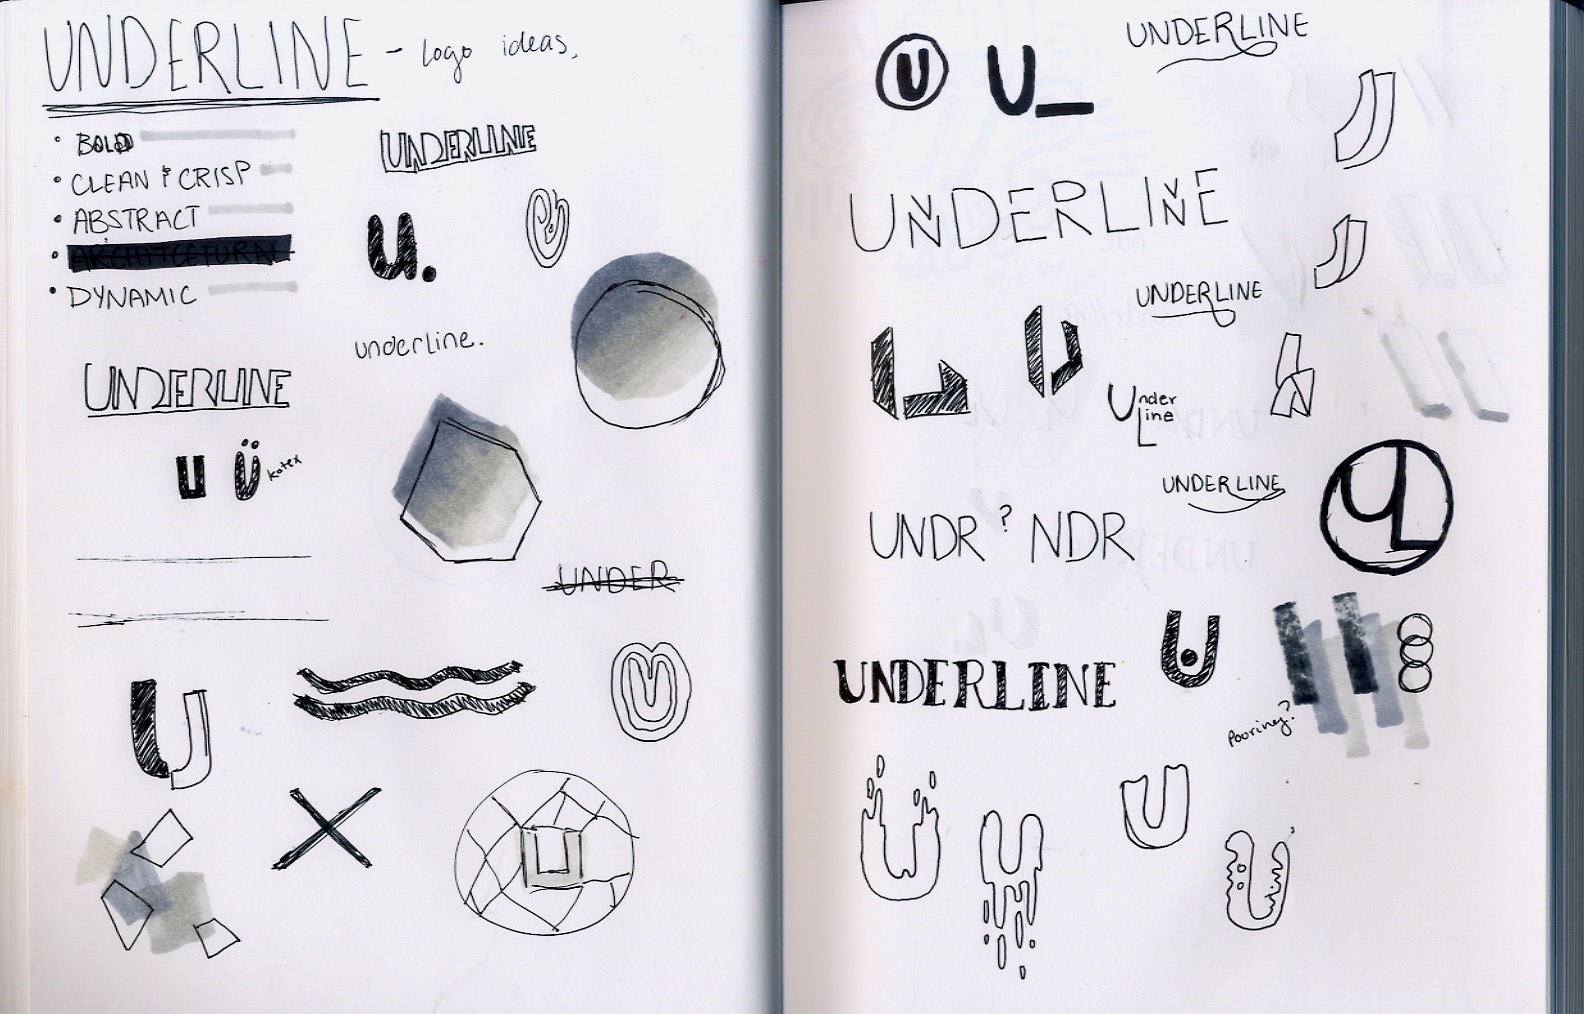 UNDERLINE - logo ideas.
• BOLD
• CLEAN & CRISP
• ABSTRACT
• ARCHITCETURAL
• DYNAMIC
UNDERLINE
u.
underline.
UNDERLINE
u Ü kotex
UNDER
U
U
U
U U_ UNDERLINE
UNDERLINE
UNDERLINE
U U
Under
Line
UNDERLINE
UL
UNDR ? NDR
U
UNDERLINE
Pooring?
U U U U